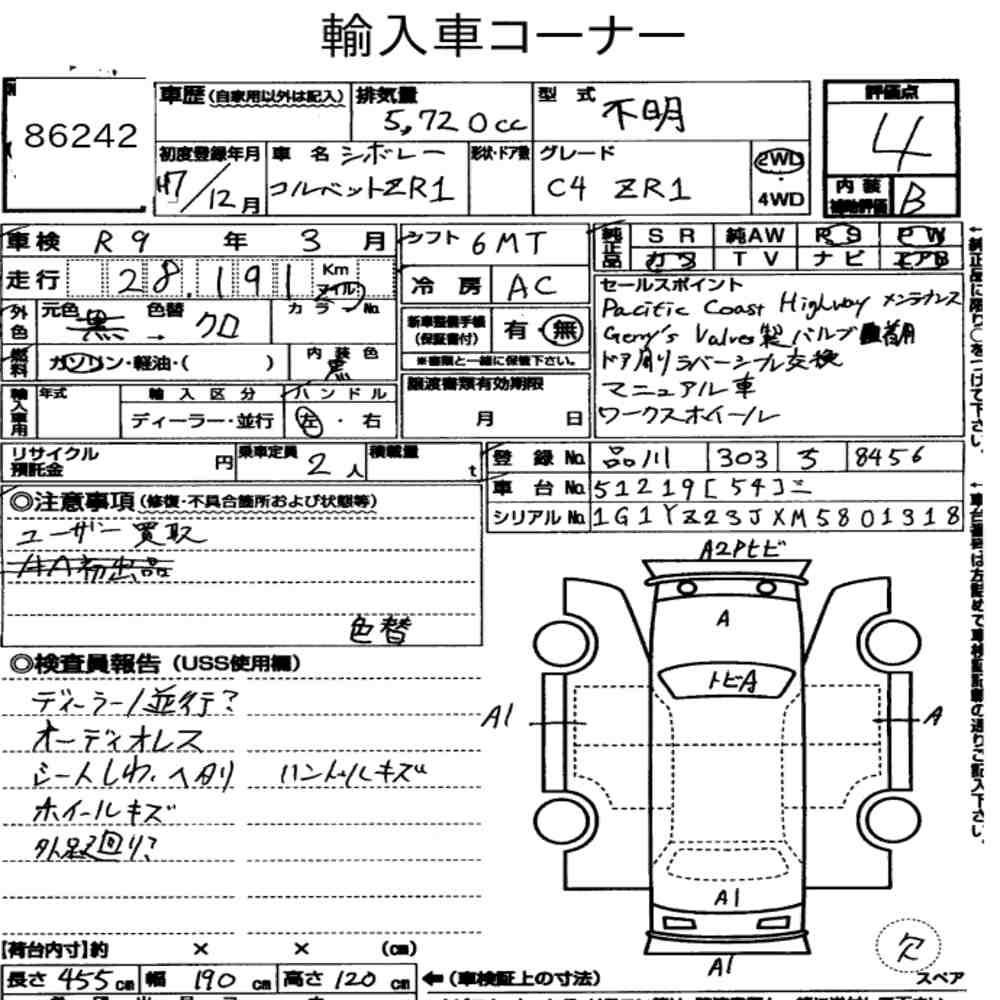 輸入車コーナー
86242
車歴 (自家用以外は記入)
排気量 5,720cc
型式 不明
評価点 4
初度登録年月 H7/12月
車名 シボレー コルベットZR1
形状・ドア数
グレード C4 ZR1
2WD ・ 4WD
内装補助評価 B
車検 R9年 3月
シフト 6MT
純正品 SR 純AW PS PW
カワ TV ナビ エアB
走行 28,191 Km マイル
冷房 AC
セールスポイント
Pacific Coast Highway メンテナンス
Gerry's Valves製バルブ
ドア周りラバーシール交換
マニュアル車
ワークスホイール
外色 元色 黒 → 色替 クロ カラーNo
新車整備手帳 (保証書付) 有・無
※書類と一緒に保管下さい。
燃料 ガソリン・軽油・( )
内装色 黒
譲渡書類有効期限
月 日
輸入車用 年式 輸入区分 ディーラー・並行
ハンドル 左・右
リサイクル預託金 円
乗車定員 2人
積載量 t
登録No 品川 303 ち 8456
車台No 51219[54]ニ
シリアルNo 1G1YZ23JXM5801318
◎注意事項 (修復・不具合箇所および状態等)
ユーザー買取
色替
◎検査員報告 (USS使用欄)
ディーラー/並行?
オーディオレス
シートしわ、ヘタリ ハンドルキズ
ホイールキズ
A2Pヒビ
A
トビA
A1
A
A1
A1
欠
スペア
←純正品に限り○をつけて下さい。
【荷台内寸】約 × × (cm)
長さ 455cm 幅 190cm 高さ 120cm
←(車検証上の寸法)